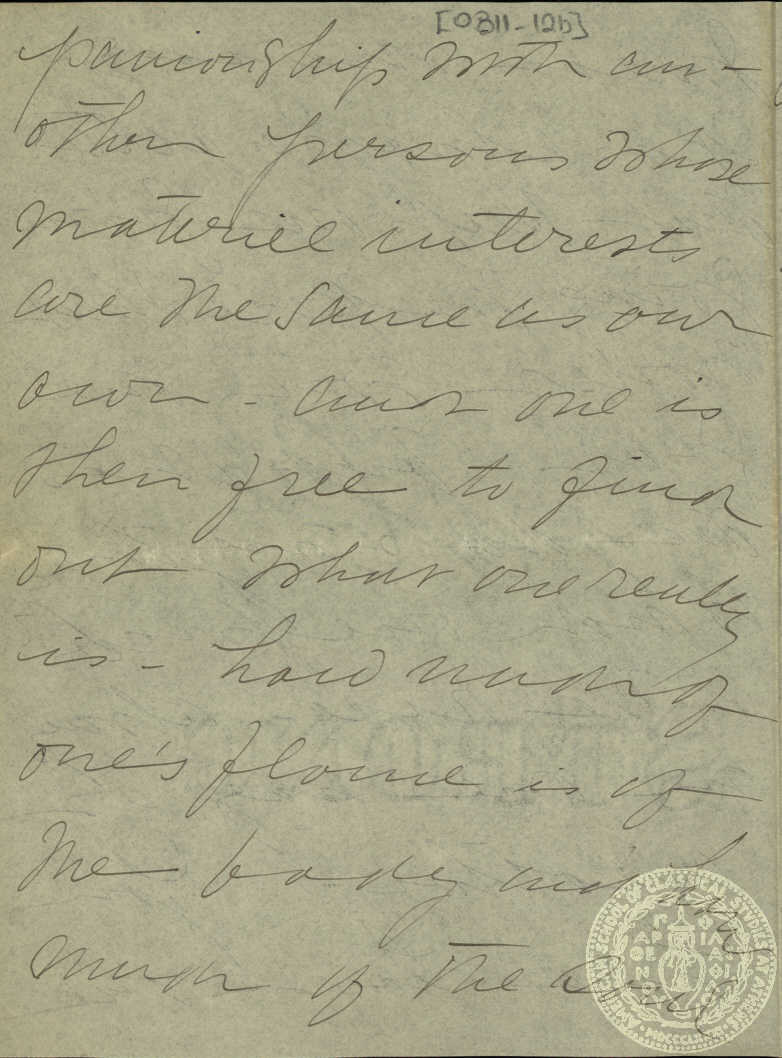 [0311-12b]
panionship with an-
other persons whose
materiel interests
are the same as our
own - and one is
then free to find
out what one really
is - how much of
one's flame is of
the body and how
much of the soul
AMERICAN SCHOOL OF CLASSICAL STUDIES AT ATHENS
ΠΑΡΘΕΝΟΥ ΦΙΛΑΘΗΝΑΙΟΥ
MDCCCLXXXI